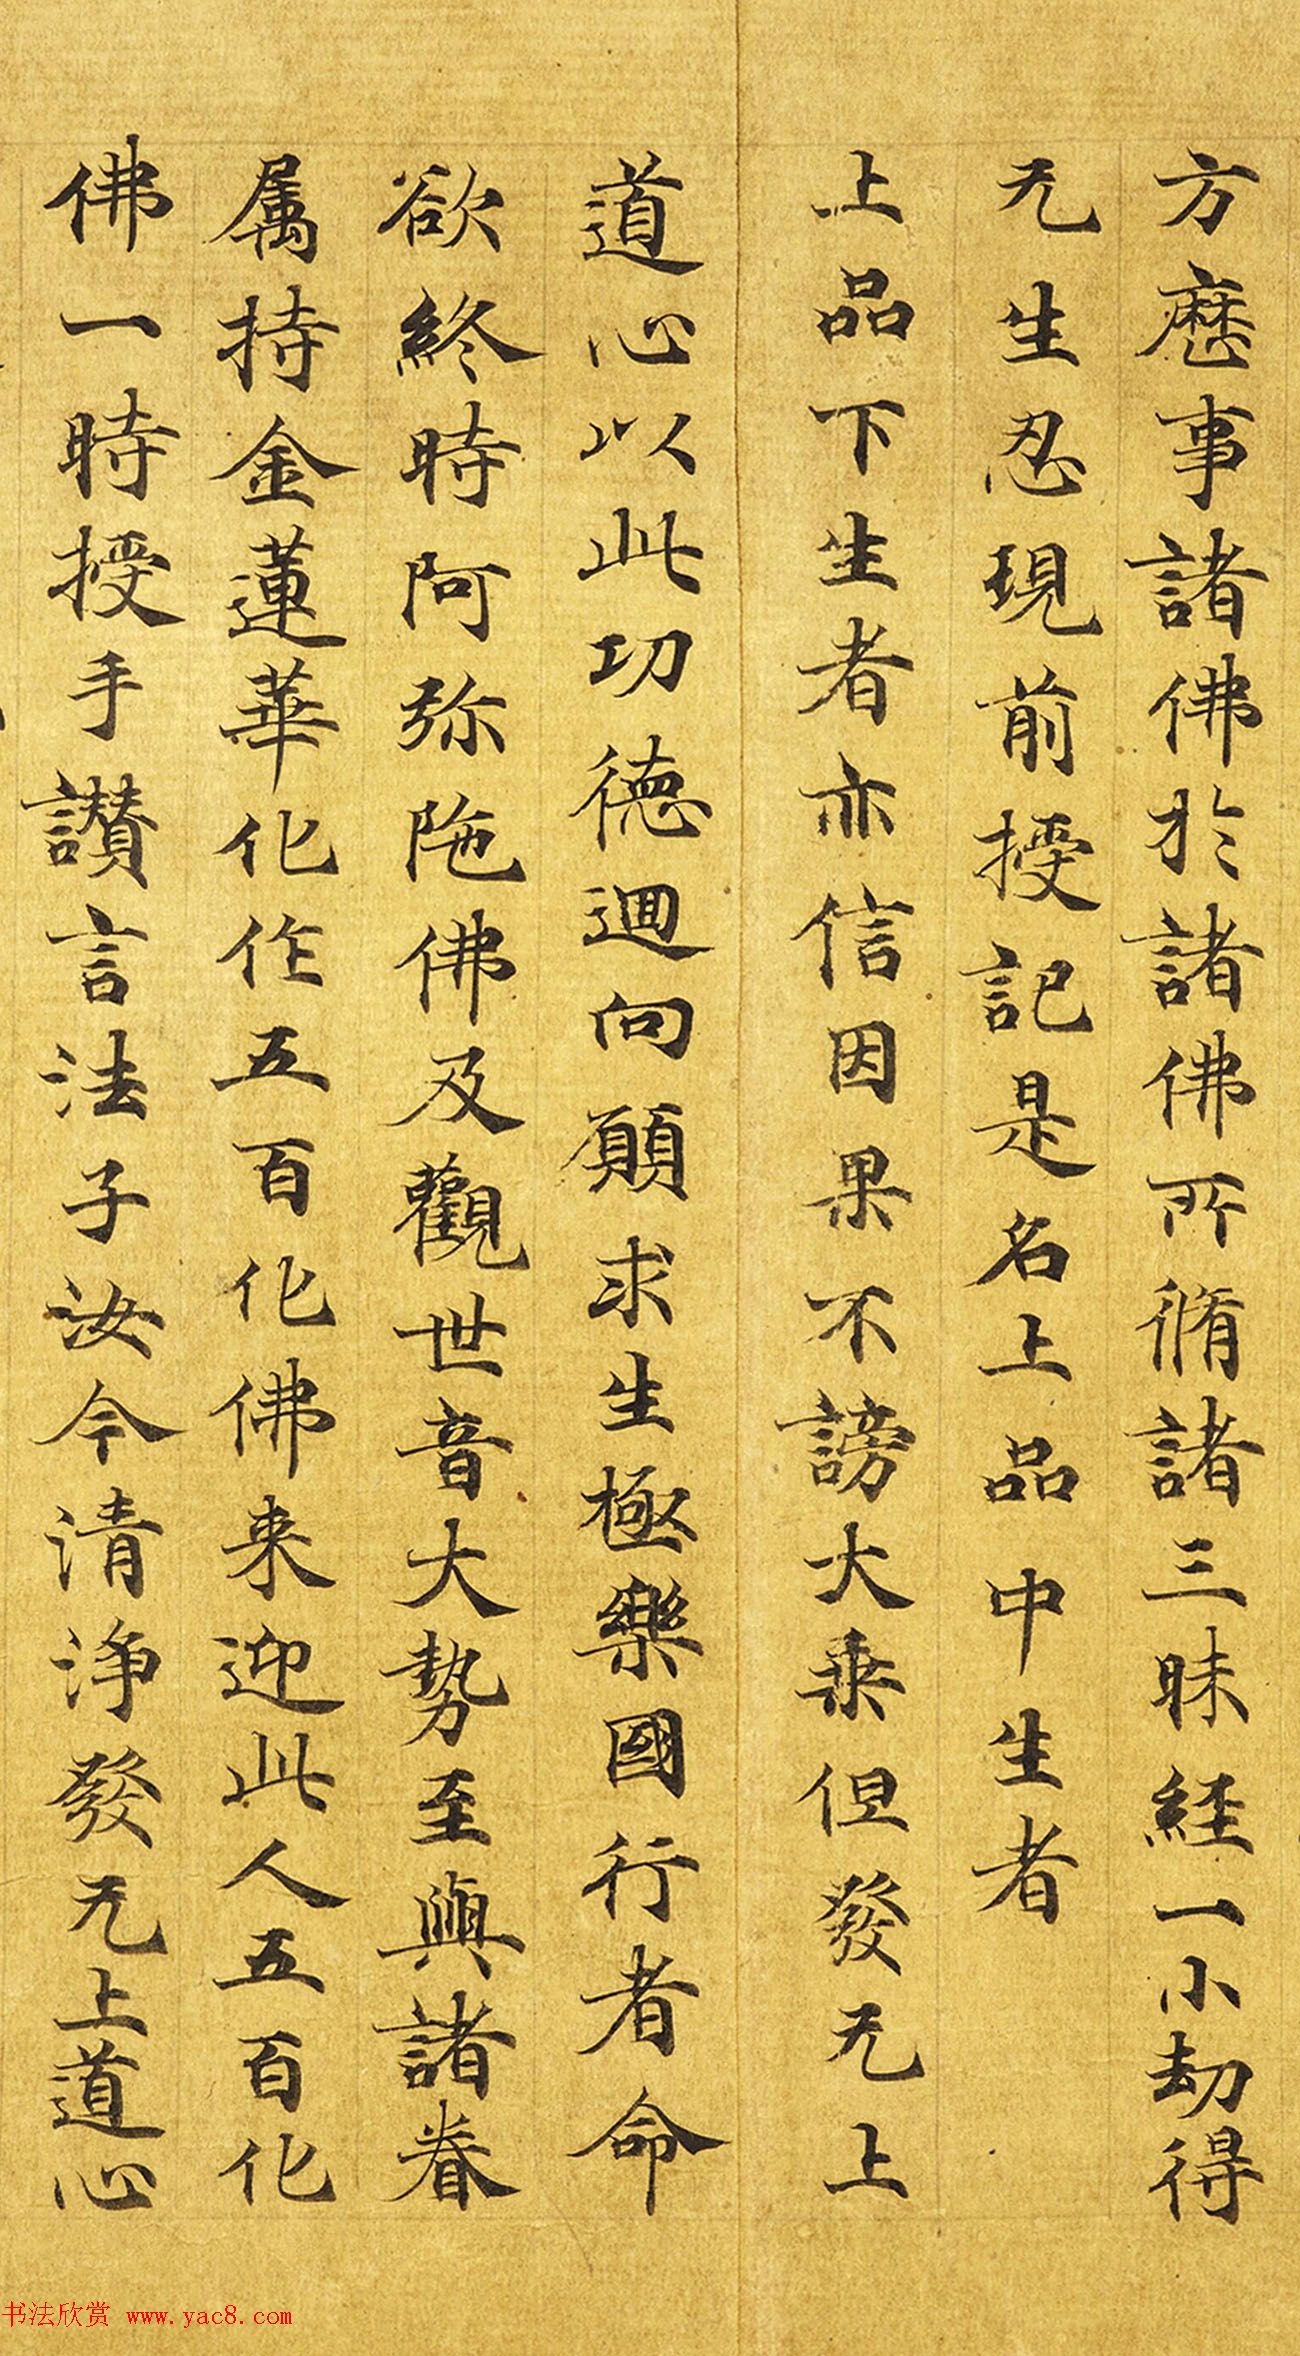 方歷事諸佛於諸佛所脩諸三昧經一小劫得
无生忍現前授記是名上品中生者
上品下生者亦信因果不謗大乗但發无上
道心以此功德迴向願求生極樂國行者命
欲終時阿弥陁佛及觀世音大勢至與諸眷
属持金蓮華化作五百化佛来迎此人五百化
佛一時授手讃言法子汝今清淨發无上道心
书法欣赏 www.yac8.com